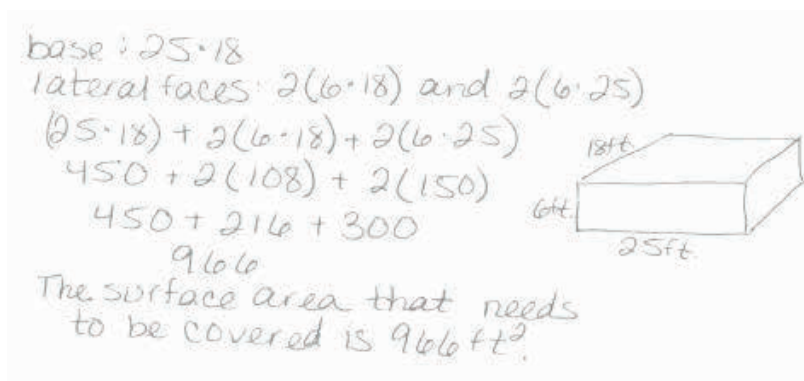 base : 25·18
lateral faces: 2(6·18) and 2(6·25)
(25·18) + 2(6·18) + 2(6·25)
450 + 2(108) + 2(150)
450 + 216 + 300
966
The surface area that needs
to be covered is 966 ft².
18ft.
6ft.
25ft.